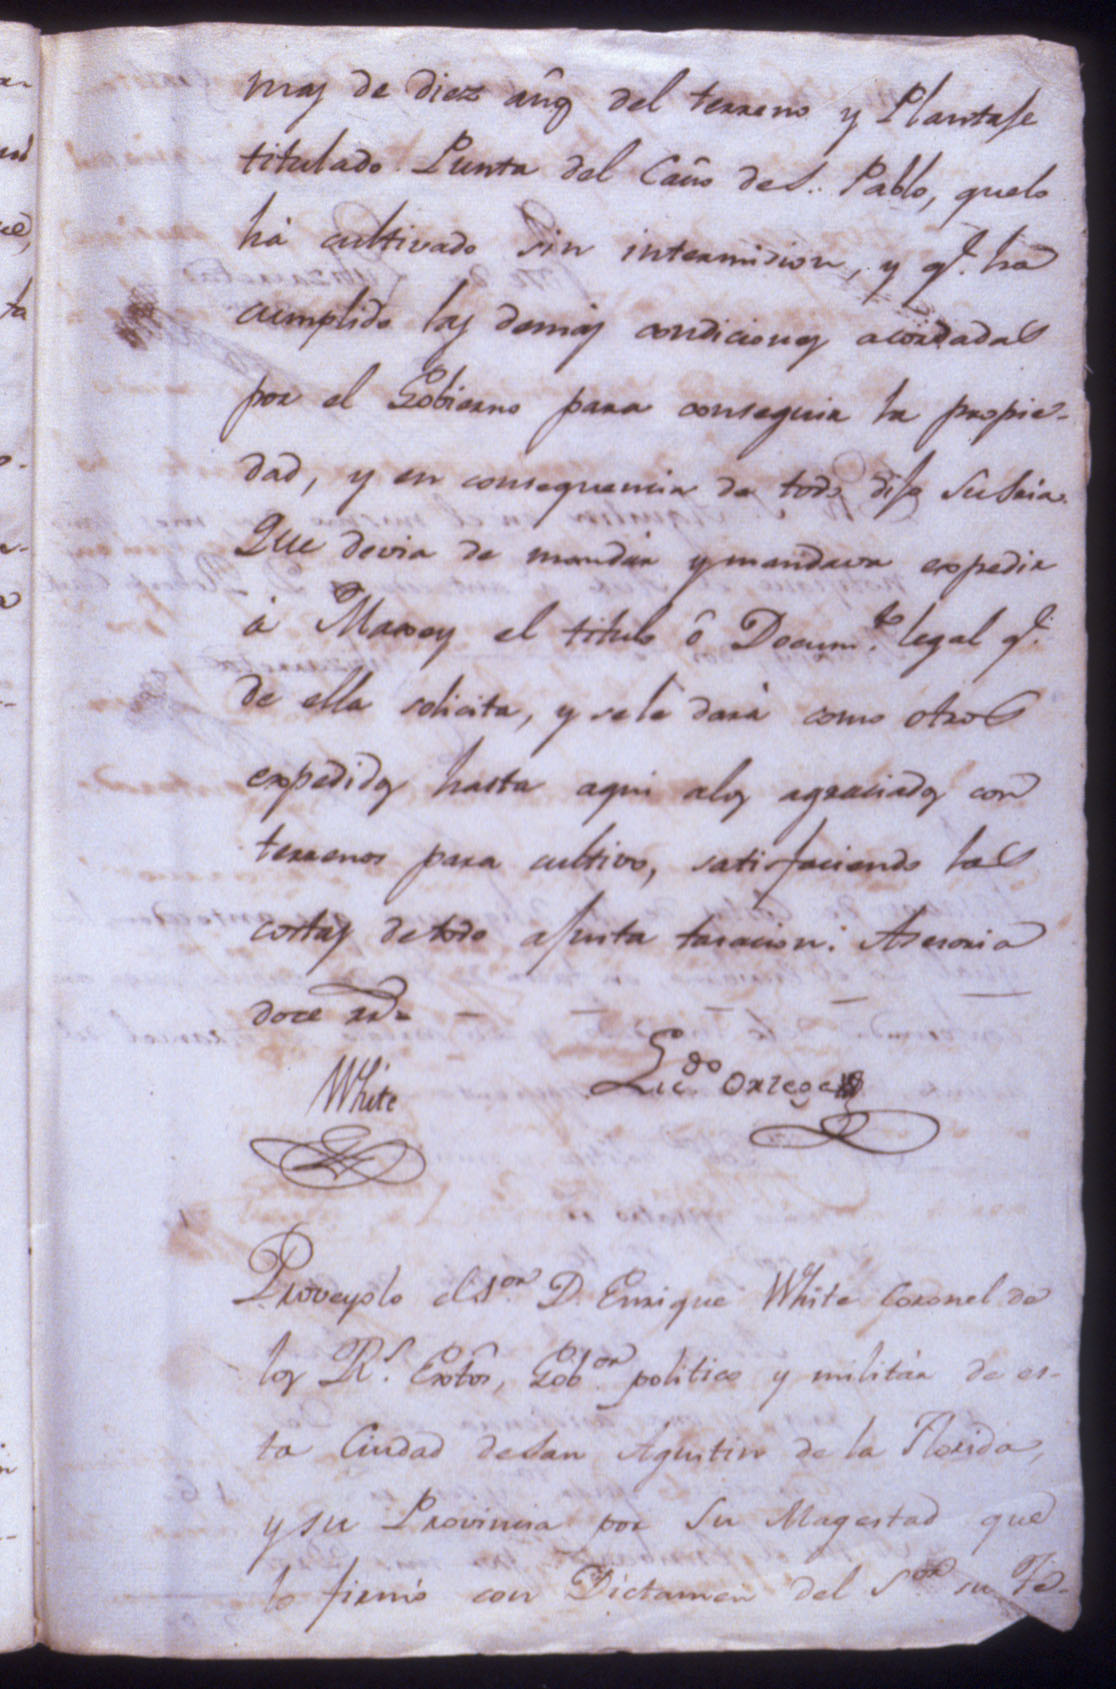 mas de diez añs del terreno y Plantaje
titulado Punta del Caño de S.. Pablo, quelo
há cultivado sin intermision, y q.e ha
cumplido las demás condiciones acordadas
por el Gobierno para conseguir la propie-
dad, y en consequencia de todo dijo Su Sria.
Que devia de mandár y mandava expedir
á Maxey el titulo ô Docum.to legal q.e
de ella solicita, y sele dará como otros
expedidos hasta aqui alos agraciados con
terrenos para cultivo, satisfaciendo las
costas detodo ajusta tasacion: Asesoria
doce rr.s
White
Lic.do Ortega
Proveyolo el S.or D. Enrique White Coronel de
los R.s Extos, Gob.or politico y militár de es-
ta Ciudad de San Agustin de la Florida,
y su Provincia por Su Magestad que
lo firmó con Dictamen del S.or su Te-